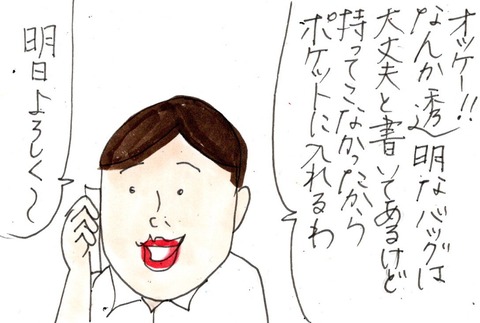 オッケー!!
なんか透明なバッグは
大丈夫と書いてあるけど
持ってこなかったから
ポケットに入れるわ
明日よろしく〜